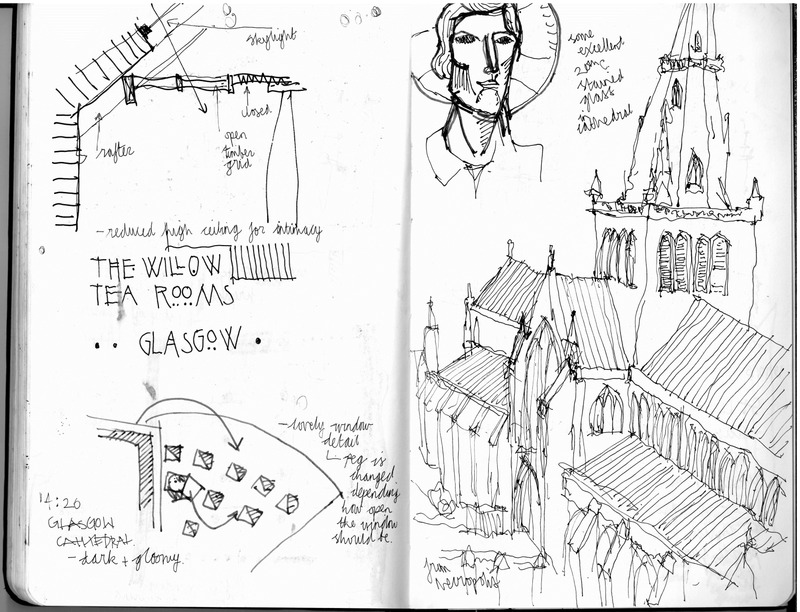 skylight
closed
open
timber
grid
rafter
- reduced high ceiling for intimacy
THE WILLOW
TEA ROOMS
.. GLASGOW .
- lovely window
detail
peg is
changed
depending
how open
the window
should be.
14:20
GLASGOW
CATHEDRAL
- dark + gloomy.
some
excellent
20thC
stained
glass
in
cathedral
from
Necropolis